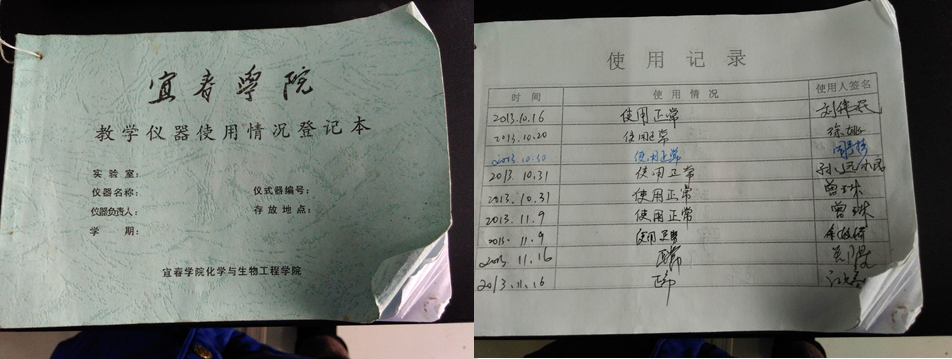 宜春学院
教学仪器使用情况登记本
实验室：
仪器名称： 仪式器编号：
仪器负责人： 存放地点：
学期：
宜春学院化学与生物工程学院
使用记录
时间 使用情况 使用人签名
2013.10.16 使用正常
2013.10.20 使用正常
2013.10.30 使用正常
2013.10.31 使用正常
2013.10.31 使用正常 曾珠
2013.11.9 使用正常 曾珠
2013.11.9 使用正常
2013.11.16 正常
2013.11.16 正常